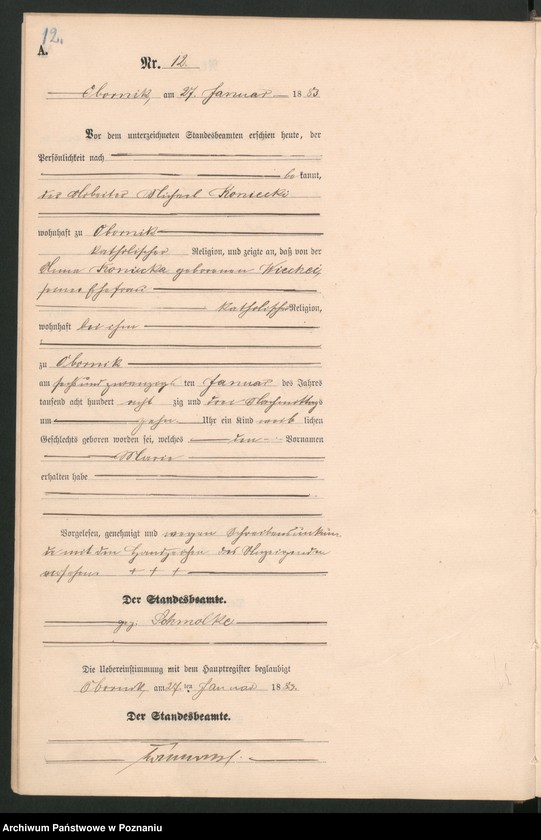 12.
A.
Nr. 12
Obornik, am 27. Januar 1883.
Vor dem unterzeichneten Standesbeamten erschien heute, der
Persönlichkeit nach
be kannt,
der Arbeiter Michael Koniecki
wohnhaft zu Obornik
katholischer Religion, und zeigte an, daß von der
Koniecka geborenen
seiner Ehefrau
katholischer Religion,
wohnhaft bei ihm
zu Obornik
am sechsundzwanzigsten Januar des Jahres
tausend acht hundert achtzig und drei Nachmittags
um zehn Uhr ein Kind weib lichen
Geschlechts geboren worden sei, welches den Vornamen
Marie
erhalten habe
Vorgelesen, genehmigt und wegen Schreibensunkunde
mit den Handzeichen des Anzeigenden
versehen + + +
Der Standesbeamte.
gez. Schmolke
Die Uebereinstimmung mit dem Hauptregister beglaubigt
Obornik, am 27 ten Januar 1883.
Der Standesbeamte.
Archiwum Państwowe w Poznaniu